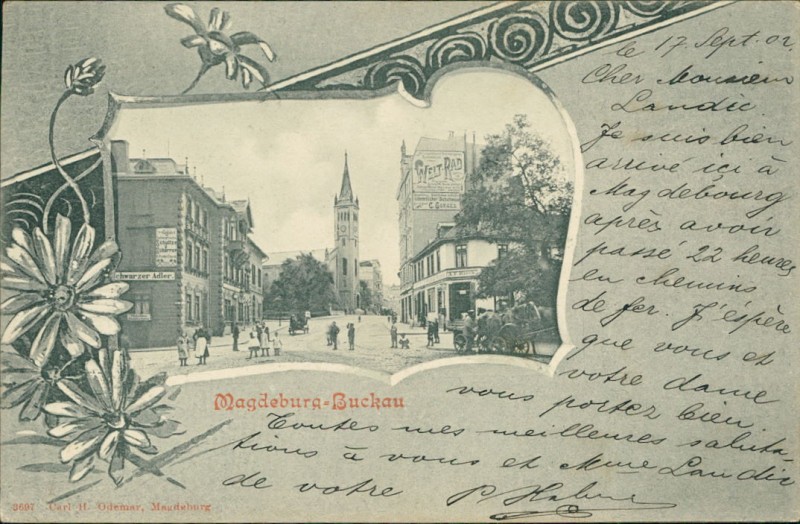 le 17 Sept. 02.
Cher Monsieur
Landic.
Je suis bien
arrivé ici à
Magdebourg
après avoir
passé 22 heures
en chemins
de fer. J'éspère
que vous et
votre dame
vous portez bien.
Toutes mes meilleures saluta-
tions à vous et Mme Landic
de votre P.
WELT RAD
Schwarzer Adler.
Magdeburg-Buckau
3697 Carl H. Odemar, Magdeburg